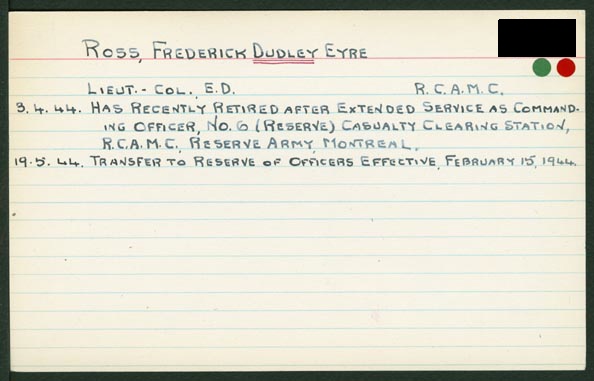 ROSS, FREDERICK DUDLEY EYRE
LIEUT.- COL., E.D. R.C.A.M.C.
3.4.44. HAS RECENTLY RETIRED AFTER EXTENDED SERVICE AS COMMAND-
ING OFFICER, NO. 6 (RESERVE) CASUALTY CLEARING STATION,
R.C.A.M.C., RESERVE ARMY, MONTREAL.
19.5.44. TRANSFER TO RESERVE OF OFFICERS EFFECTIVE, FEBRUARY 15, 1944.